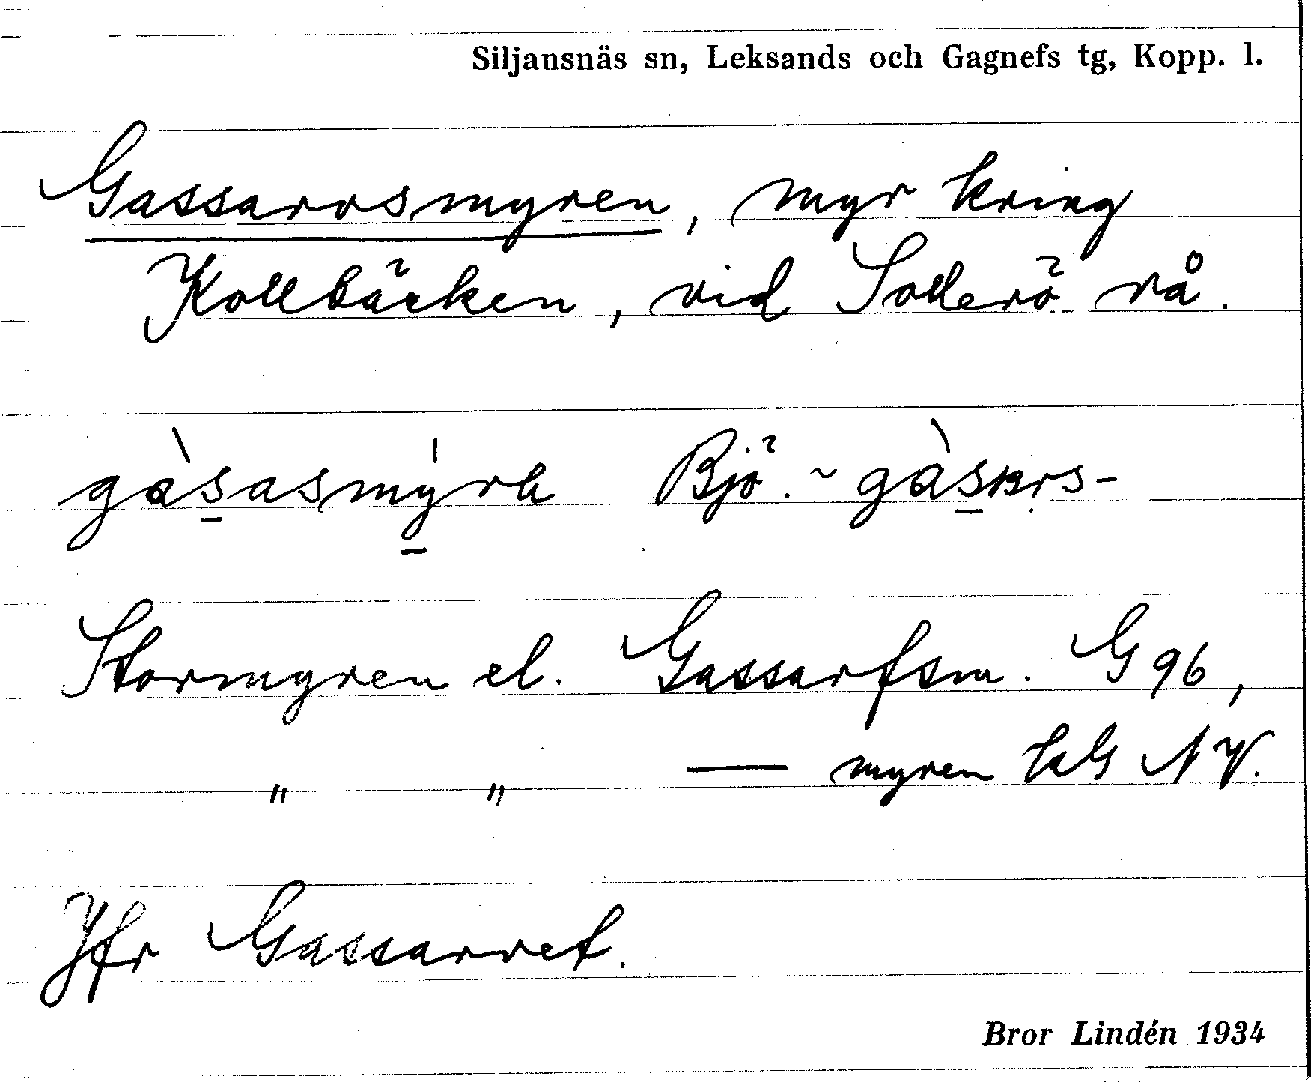 Siljansnäs sn, Leksands och Gagnefs tg, Kopp. l.
Gassarvsmyren, myr kring
Kollbäcken, vid Sollerö rå.
gàsasmýra Bjö. ~ gàsars-
Stormyren el. Gassarfsm. G 96,
" " — myren hG NV.
Jfr Gassarvet.
Bror Lindén 1934